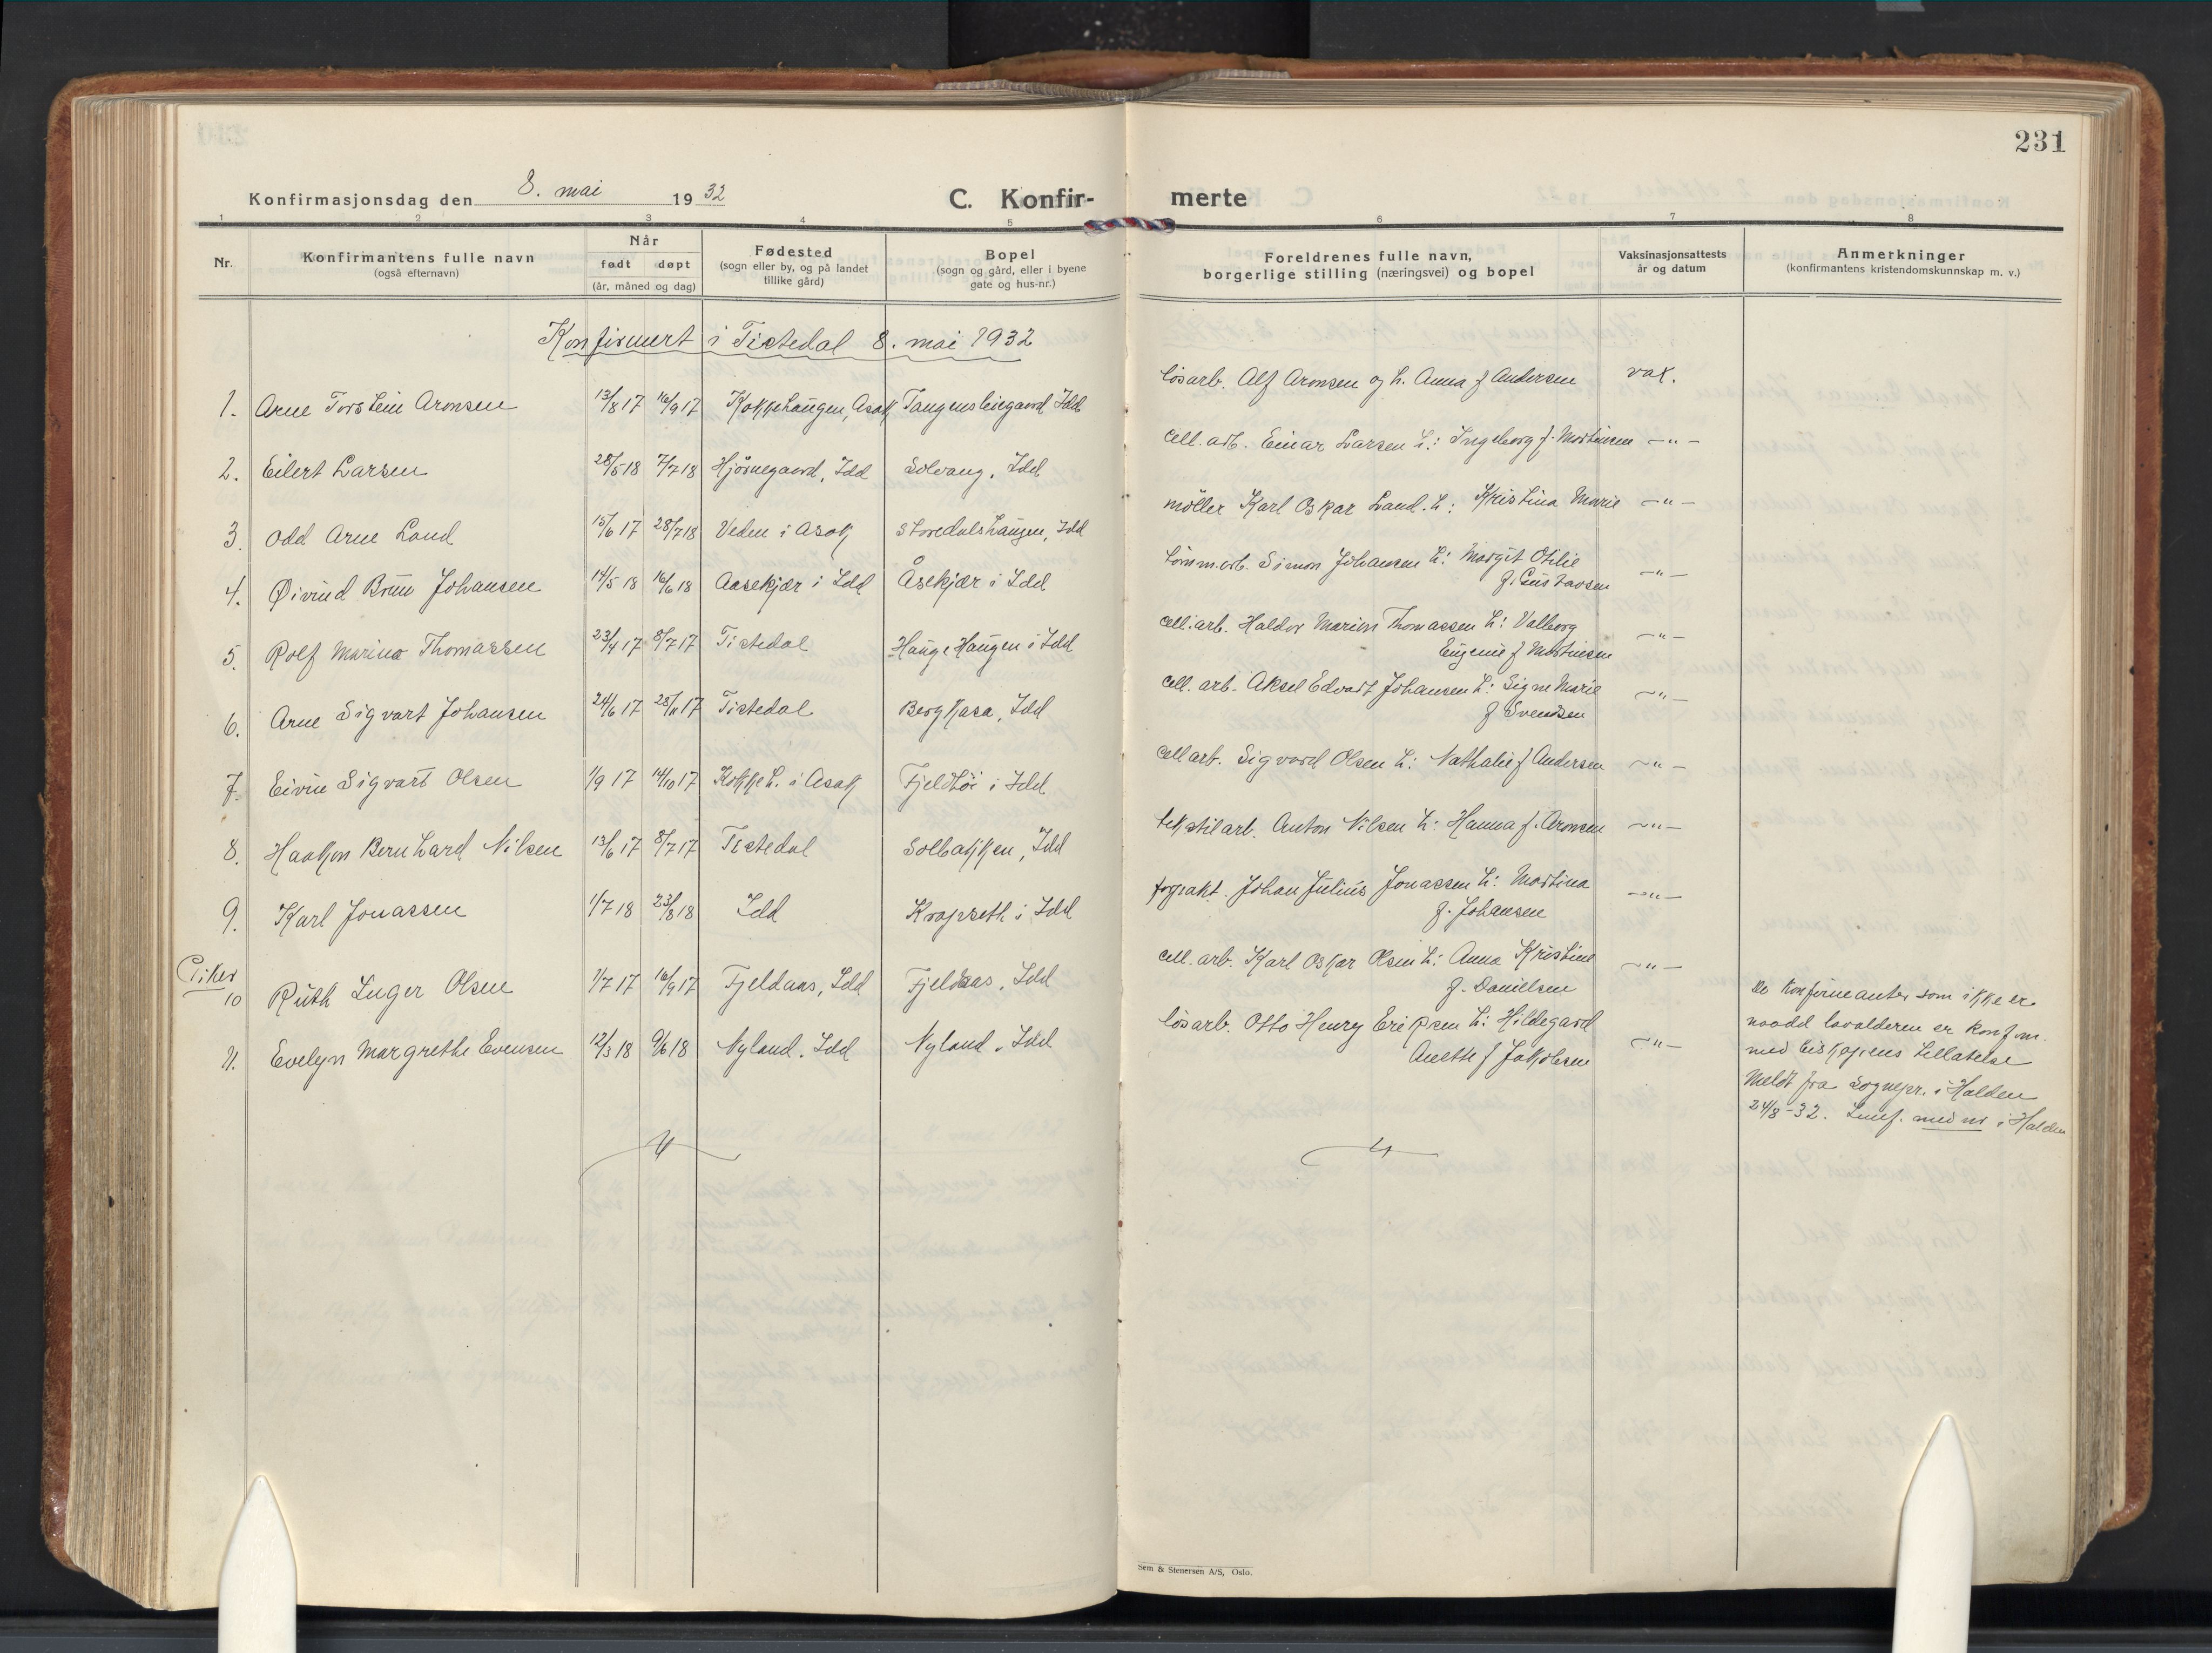 231
Konfirmasjonsdag den 8. mai 1932
C. Konfirmerte
1 2 3 4 5 6 7 8
Nr. | Konfirmantens fulle navn (også efternavn) | Når født døpt (år, måned og dag) | Fødested (sogn eller by, og på landet tillike gård) | Bopel (sogn og gård, eller i byene gate og hus-nr.) | Foreldrenes fulle navn, borgerlige stilling (næringsvei) og bopel | Vaksinasjonsattests år og datum | Anmerkninger (konfirmantens kristendomskunnskap m. v.)
Konfirmert i Tistedal 8. mai 1932
1. Arne Torstein Aronsen 13/8 17 16/9 17 Kokkehaugen, Asak Tangensleiegaard Idd løsarb. Alf Aronsen og h. Anna f Andersen vax.
2. Eilert Larsen 28/5 18 7/7 18 Hjørnegaard, Idd Solvang, Idd cell. arb. Einar Larsen h: Ingeborg f. Martinsen –"–
3. Odd Arne Land 15/6 17 28/7 18 Veden i Asak Storedalshaugen, Idd møller Karl Oskar Land. h: Kristina Marie –"–
4. Øivind Brun Johansen 14/5 18 16/6 18 Aasekjær i Idd Åsekjær i Idd tømm.arb. Simon Johansen h: Margit Otilie f. Gustavsen –"–
5. Rolf Marino Thomassen 23/4 17 8/7 17 Tistedal Hauge Haugen i Idd cell. arb. Haldor Marion Thomassen h: Valborg Eugenie f Martinsen –"–
6. Arne Sigvart Johansen 24/6 17 28/11 17 Tistedal Bergkasa, Idd cell. arb. Aksel Edvart Johansen h: Signe Marie f Svendsen –"–
7. Eivin Sigvart Olsen 1/9 17 14/10 17 Kokkeh. i Asak Fjeldhøi i Idd cell arb. Sigvard Olsen h: Nathalie f Andersen –"–
8. Haakon Bernhard Nilsen 13/6 17 8/7 17 Tistedal Solbakken, Idd tekstilarb. Anton Nilsen h: Hanna f. Aronsen –"–
9. Karl Jonassen 1/7 18 23/8 18 Idd Krapseth i Idd forpakt. Johan Julius Jonassen h: Martina f. Johansen –"–
Piker
10 Ruth Inger Olsen 1/7 17 16/9 17 Fjeldaas, Idd Fjeldaas, Idd cell. arb. Karl Oskar Olsen h: Anna Kristine f. Danielsen –"–
11. Evelyn Margrethe Evensen 12/3 18 9/6 18 Nyland, Idd Nyland, Idd løsarb. Otto Henry Eriksen h: Hildegard Anette f Jakobsen –"–
De konfirmanter som ikke er
naadd lavalderen er konfirm.
med biskopens tillatelse
Meldt fra Sognepr. i Halden
24/8-32. med nr i Halden
Sem & Stenersen A/S, Oslo.